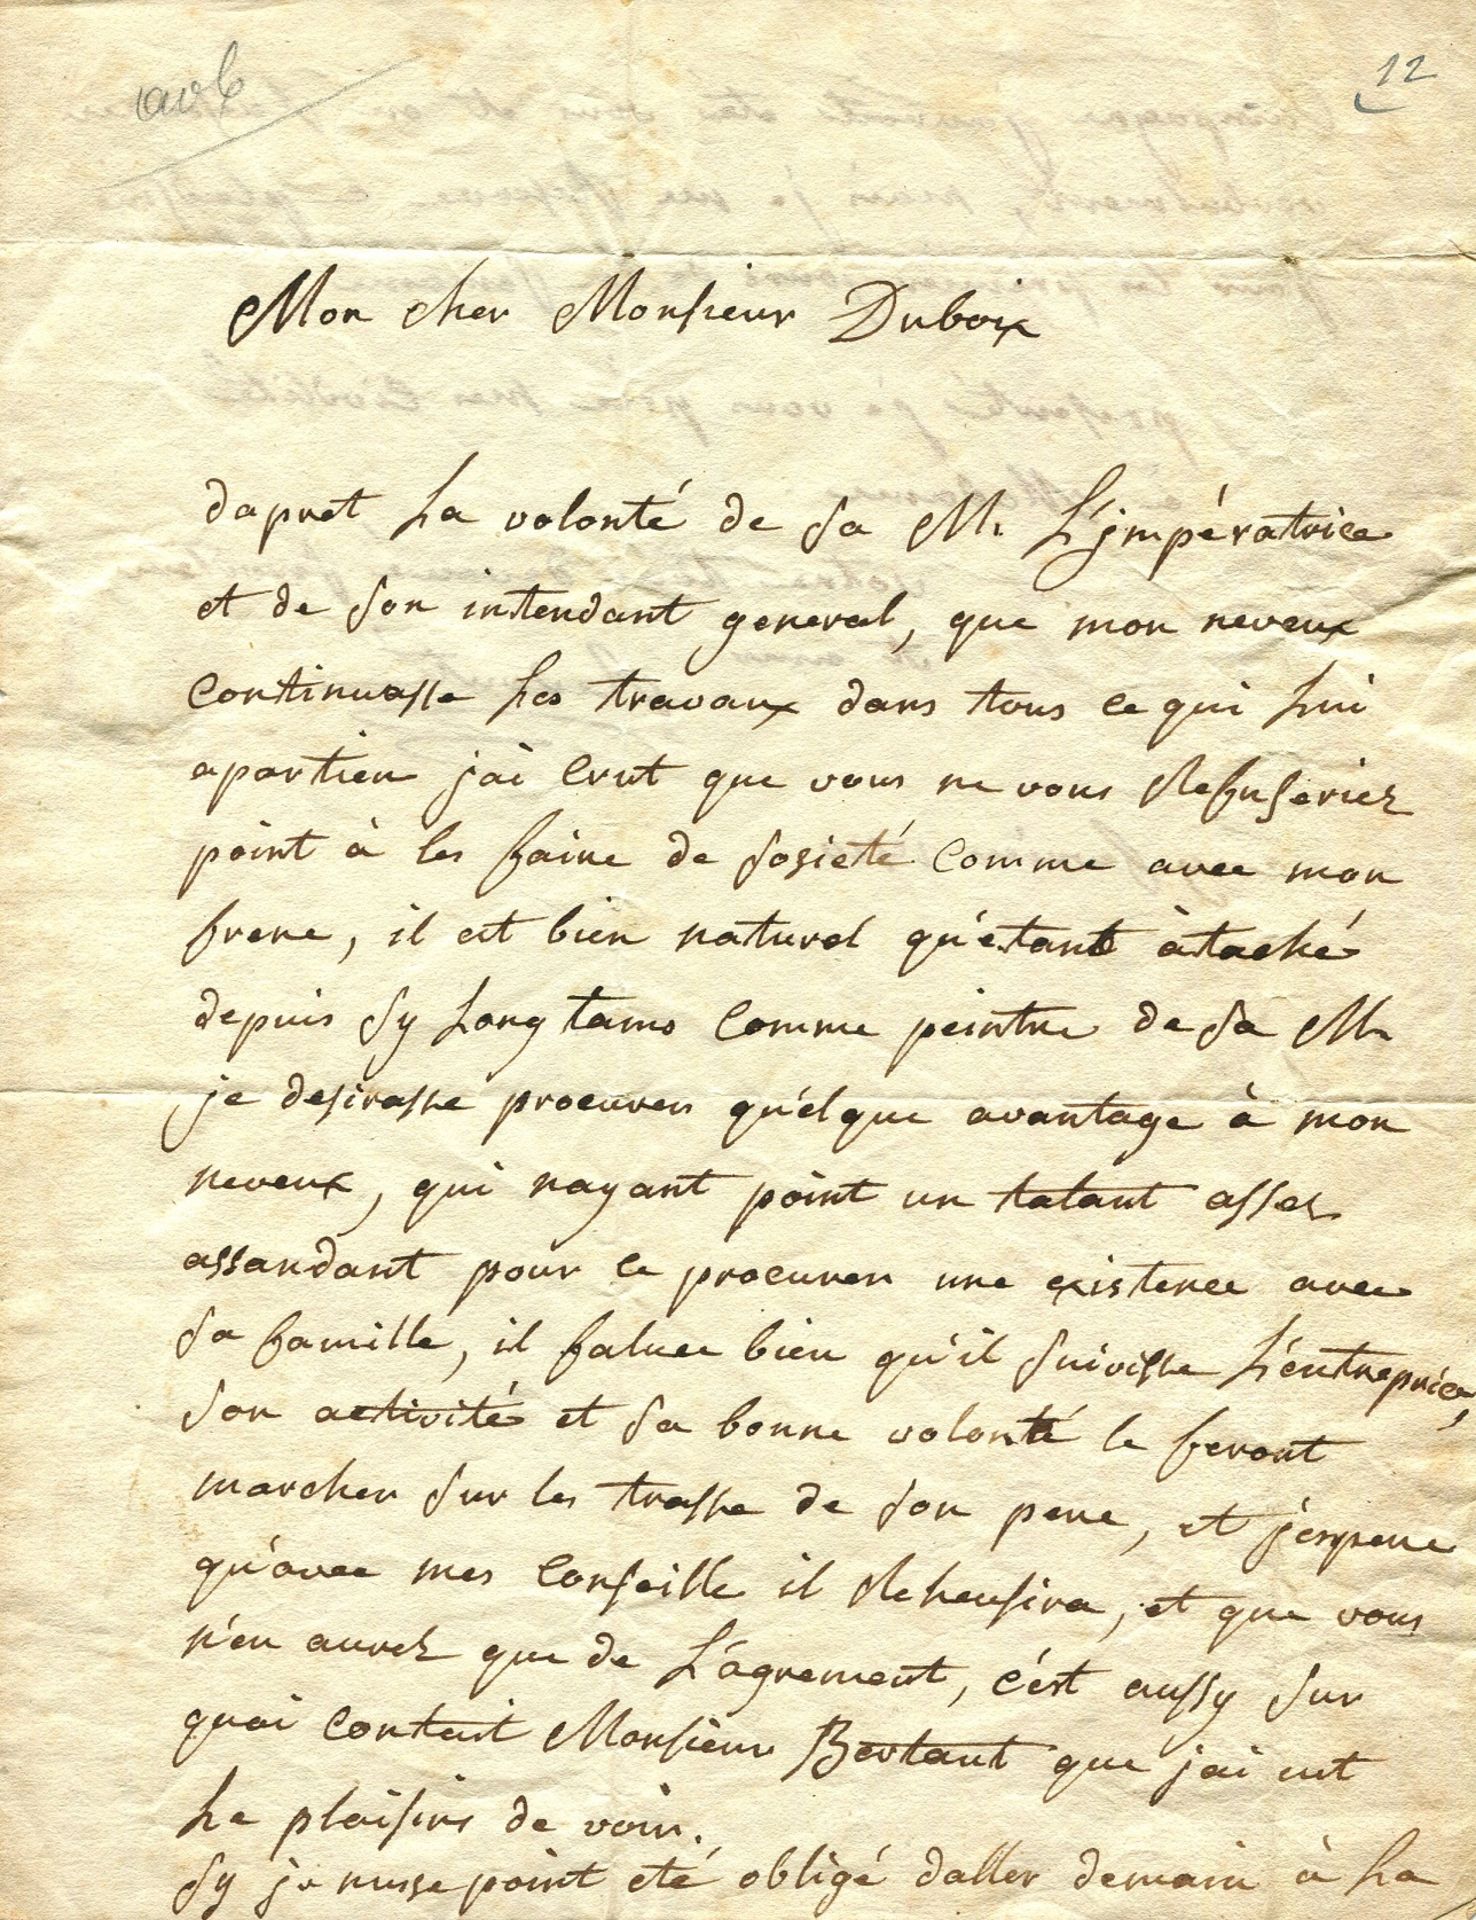 12
Mon cher Monsieur Duboix
dapret La volonté de Sa M. L'jmpératrice
et de Son intendant general, que mon neveux
continuasse Les travaux dans tous ce qui Lui
apartien j'ai crut que vous ne vous Refuseriez
point à les faire de Sosieté comme avec mon
frere, il est bien naturel qu'étant àtaché
depuis Sy Long tams comme peintre de Sa M.
je desirasse procurer qu'élque avantage à mon
neveux, qui nayant point un talant assez
assandant pour ce procurer une existence avec
Sa famille, il faluee bien qu'il Suivisse L'entreprice,
Son activité et Sa bonne volonté le feront
marcher Sur les trasse de Son pere, et j'espere
qu'avec mes conseille il Reheusira, et que vous
n'en aurez que de L'agrement, c'est aussy Sur
quoi contait Monsieur Bertaut que j'ai eut
Le plaisirs de voir.
Sy je nusse point eté obligé daller demain à La